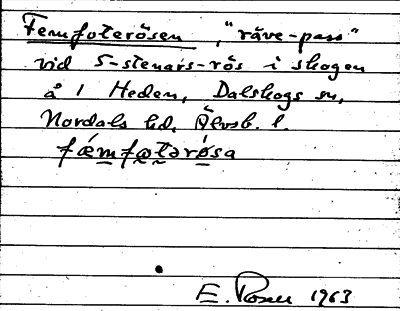 Femfoterösen, "räve-pass"
vid 5-stenars-rös i skogen
å 1 Heden, Dalskogs sn,
Nordals hd, Älvsb. l.
fǽmfo̲tərö́sa
E. 1963